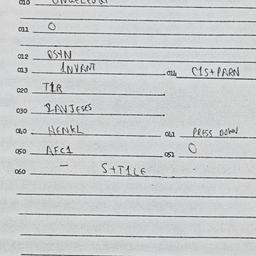 010
011 O
012 PSYN
013 INVANT 014 C1S+PARN
020 T1R
030
040 HENKL 041 PRESS DOWN
050 AFC1 051 O
060 - S+T1LE